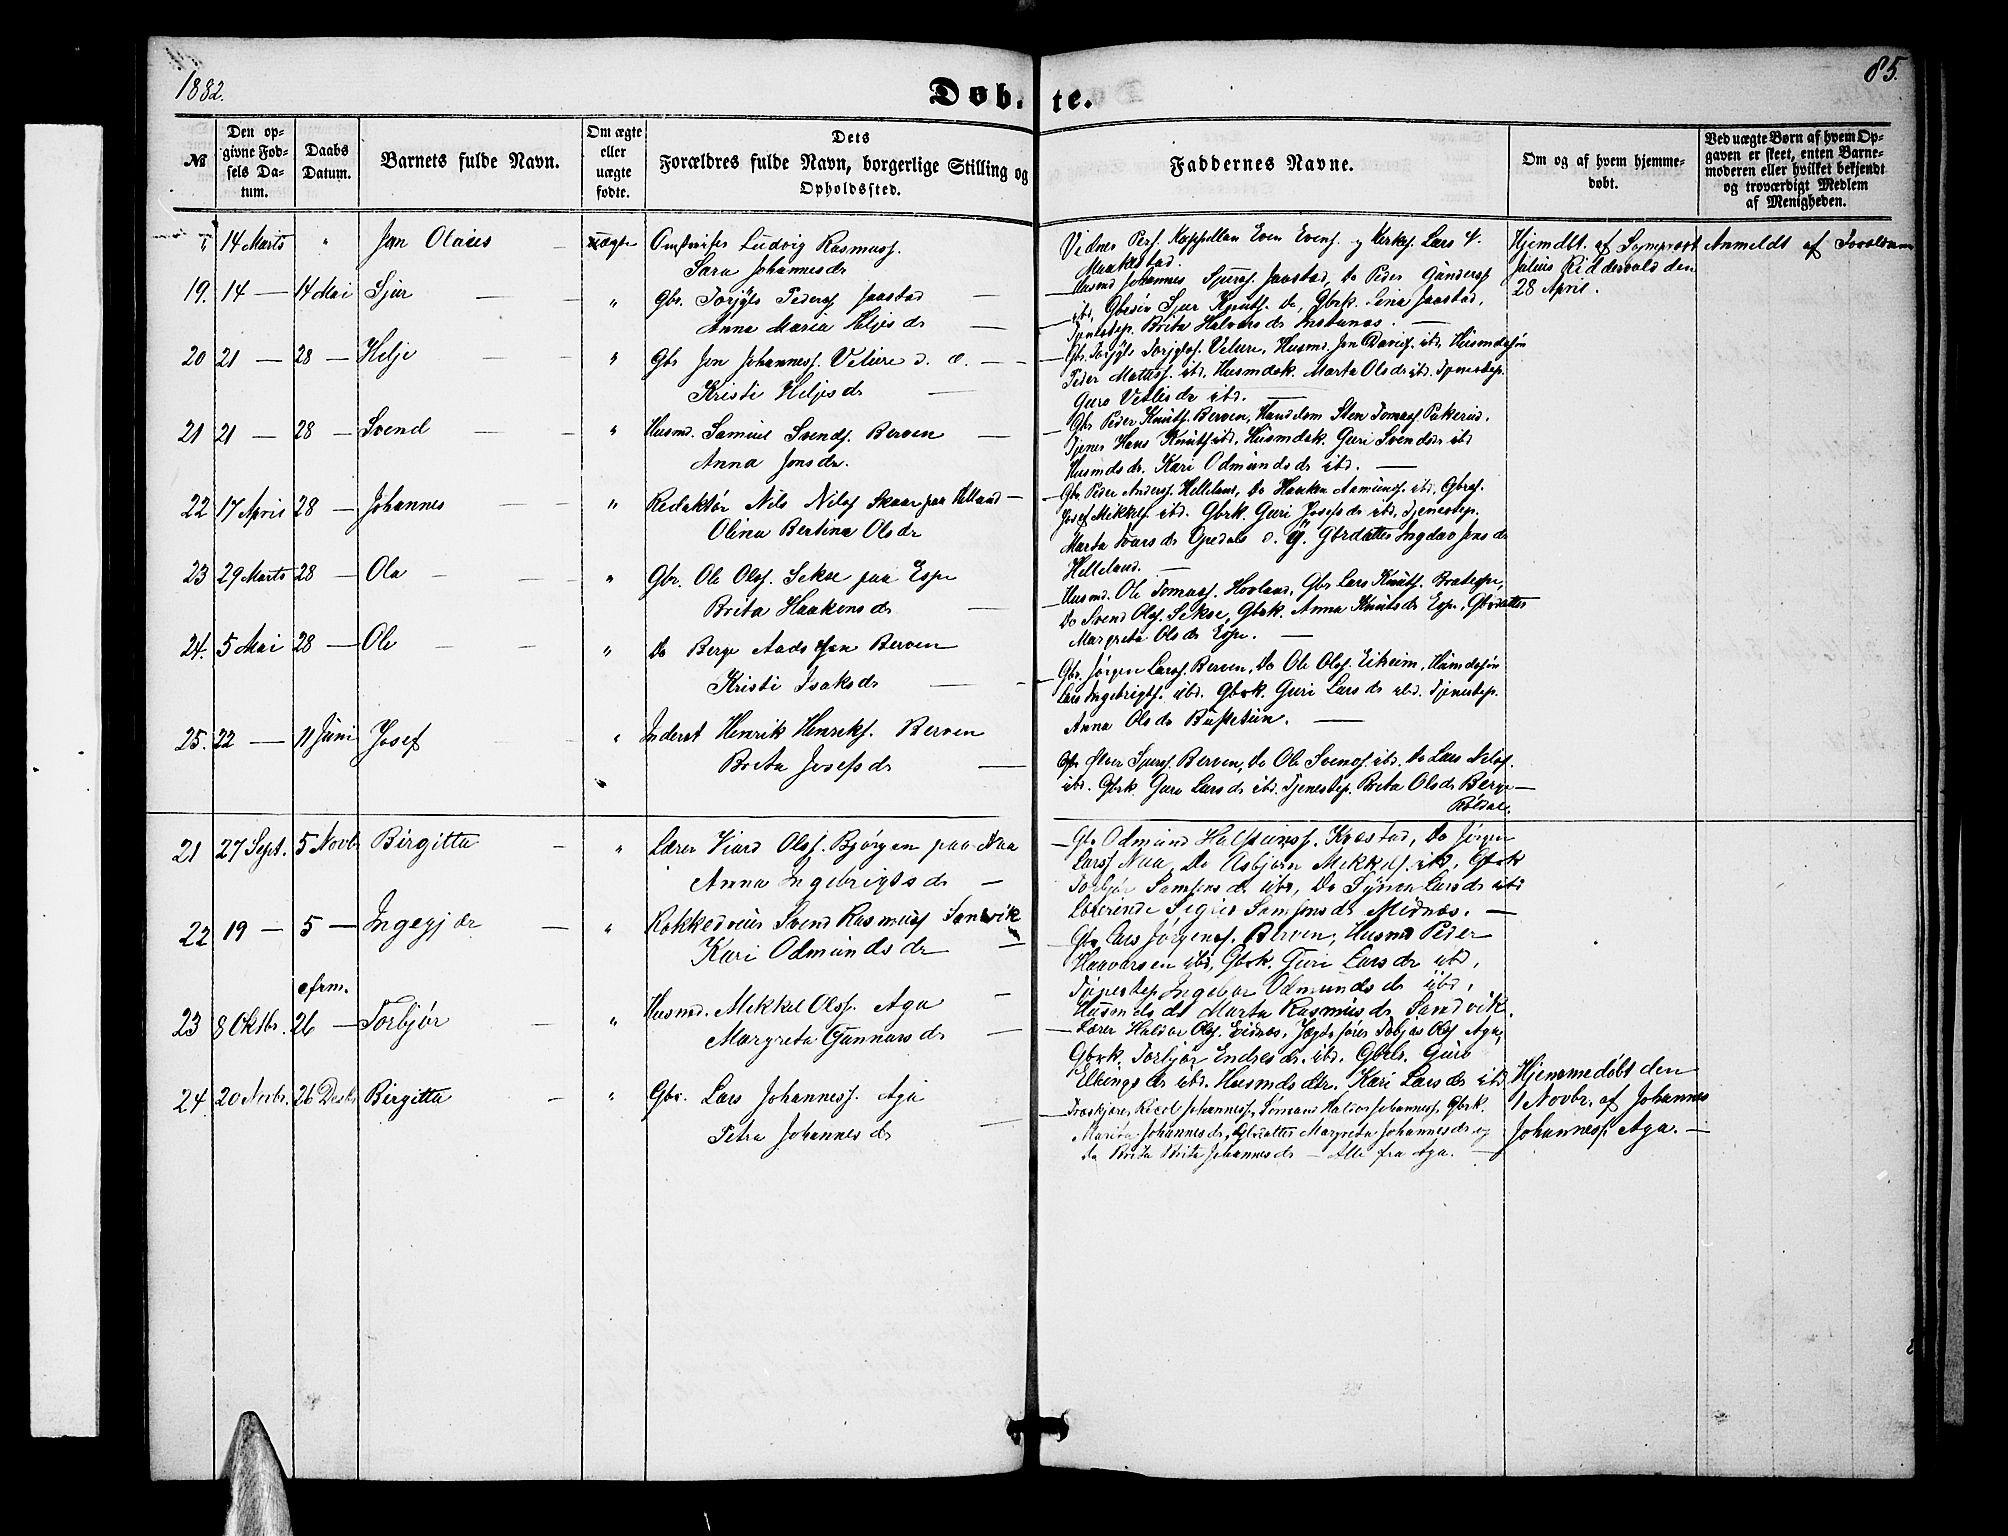 1882.
Døbte.
85.
№
Den opgivne Fødsels Datum.
Daabs Datum.
Barnets fulde Navn.
Om ægte eller uægte fødte.
Dets Forældres fulde Navn, borgerlige Stilling og Opholdssted.
Faddernes Navne.
Om og af hvem hjemmedøbt.
Ved uægte Børn af hvem Opgaven er skeet, enten Barnemoderen eller hvilket bekjendt og troværdigt Medlem af Menigheden.
14 Marts " Jon Olaus — uægte Ludvig Rasmuss.
Sara Johannesdr
Vidner Pers. Kappellan Even Evens. og Kirkes. Lars
Maakestad.
Hjemdbt. af
Julius Riddervold den
28 April.
Anmeldt af
19. 14 — 14 Mai Sjur — — " Gbr. Torjyls Peders. Jaastad —
Anna Maria Heljesdr —
Husmd Johannes Sjurs. Jaastad, Do Peder Gunders.
ibd, Gbrsøn Sjur Knuts. do, Gbrk. Sina Jaastad,
Tjenestep. Brita Halvorsdr —
20 21 — 28 — Helje — — " Gbr Jon Johanness. Velure d. æ. — —
Kristi Heljesdr —
Gbr Torjyls Torjylss. Velure, Husmd. Jon Davids. ibd, Husmdssøn
Peder Mattess. ibd, Husmdsk. Marta Olsdr ibd. Tjenestep.
Guro Vetlesdr ibd. —
21 21 — 28 — Svend — — " Husmd. Samuel Svends. Berven —
Anna Jonsdr.
Gbr Peder Knuts. Berven, Handelsm Sten Tomass.
Tjener Hans Knuts. ibd, Husmdsk. Guri Svendsdr ibd
Husmdsdr. Kari Odmundsdr ibd. —
22 17 April 28 — Johannes — — " Redaktør Nils Nilss Skaar paa —
Olina Bertina Olsdr
Gbr Peder Anders. Helleland, Do Haaken Aamunds. ibd, Gbrs.
Josef Mikkels. ibd. Gbrk. Guri Josefsdr ibd. Tjenestep.
Marta Ivarsdr Opedal d. y. Gbrdatter Ingebor Jonsdr
Helleland. —
23 29 Marts 28 — Ola — — " Gbr. Ole Olss. Sekse paa Espe
Brita Haakensdr —
Husmd. Ole Tomass. Hovland, Gbr Lars Knuts. Bratespe,
Do Svend Olss. Sekse, Gbrk. Anna Knutsdr Espe, Gbrdatter
Margreta Olsdr Espe. —
24. 5 Mai 28 — Ole — — " Do Berge Berven
Kristi Isaksdr — —
Gbr. Jørgen Larss. Berven, Do Ole Olss. Eikeim, Husmdssøn
Lars Ingebrigts. ibd. Gbrk. Guri Larsdr ibd. Tjenestep.
Anna Olsdr —
25. 22 — 11 Juni Josef " Inderst Henrik Henriks. Berven
Brita Josefsdr —
Gbr Sjurs. Berven, Do Ole Svends. ibd, Do Lars Nilss.
ibd. Gbrk. Guri Larsdr ibd. Tjenestep. Brita Olsdr Berge —
Røldal.
21 27 Sept. 5 Novbr Birgitta — " Lærer Viard Olss. Bjørgen paa Naa
Anna Ingebrigtsdr —
Gbr Odmund Halsteins. Kvestad, Do Jørgen
Larss Naa, Do Asbjørn Mikkels. ibd, Gbrk
Torbjør Samsonsdr ibd, Do Synva Larsdr ibd
Lærerinde Samsonsdr Midnæs. —
22 19 — 5 — Ingegjær — " Rokkedreier Svend Rasmuss Sandvik
Kari Odmundsdr —
Gbr Lars Jørgens. Berven, Husmd Peder
Haavorsen ibd, Gbrk. Guri Larsdr ibd,
Tjenestep. Ingebor Odmundsdr ibd,
Husmdsdt Marta Rasmusdr Sandvik.
efrm.
23 8 Oktbr. 26 — Torbjør — " Husmd. Mikkel Olss. Aga —
Margreta Gunnarsdr —
Lærer Haldor Olss. Eidnæs, Jægtefører Tobjas Olss Aga,
Gbrk. Torbjør Endresdr. ibd. Guro
Ellingsdr ibd. Husmdsdtr. Kari Larsdr ibd
24. 20 Novbr. 26 Desbr Birgitta " Gbr. Lars Johanness. Aga
Petra Johannesdr —
Johanness, Sømand Halvor Johanness, Gbrk.
Marita Johannesdr, Gbrdatter Margreta Johannesdr og
do Brita Brita Johannesdr — Alle fra Aga. —
Hjemmedøbt den
1 Novbr. af Johannes
Johanness. Aga. —